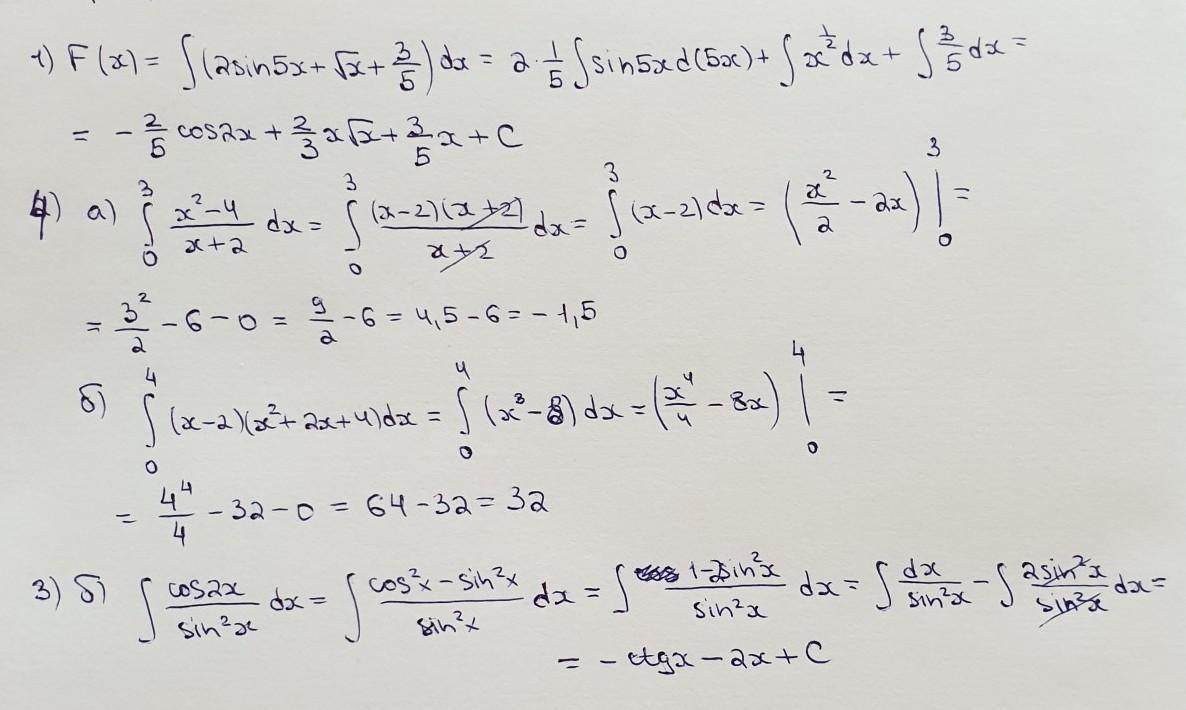 1) F(x) = ∫(2sin5x + √x + 3/5) dx = 2·1/5 ∫sin5x d(5x) + ∫x^(1/2) dx + ∫3/5 dx =
= -2/5 cos2x + 2/3 x√x + 3/5 x + C
4) а) ∫₀³ (x²-4)/(x+2) dx = ∫₀³ (x-2)(x+2)/(x+2) dx = ∫₀³ (x-2) dx = (x²/2 - 2x) |₀³ =
= 3²/2 - 6 - 0 = 9/2 - 6 = 4,5 - 6 = -1,5
б) ∫₀⁴ (x-2)(x²+2x+4)dx = ∫₀⁴ (x³-8) dx = (x⁴/4 - 8x) |₀⁴ =
= 4⁴/4 - 32 - 0 = 64 - 32 = 32
3) б) ∫ cos2x/sin²x dx = ∫ (cos²x - sin²x)/sin²x dx = ∫ (1-2sin²x)/sin²x dx = ∫ dx/sin²x - ∫ 2sin²x/sin²x dx =
= -ctgx - 2x + C